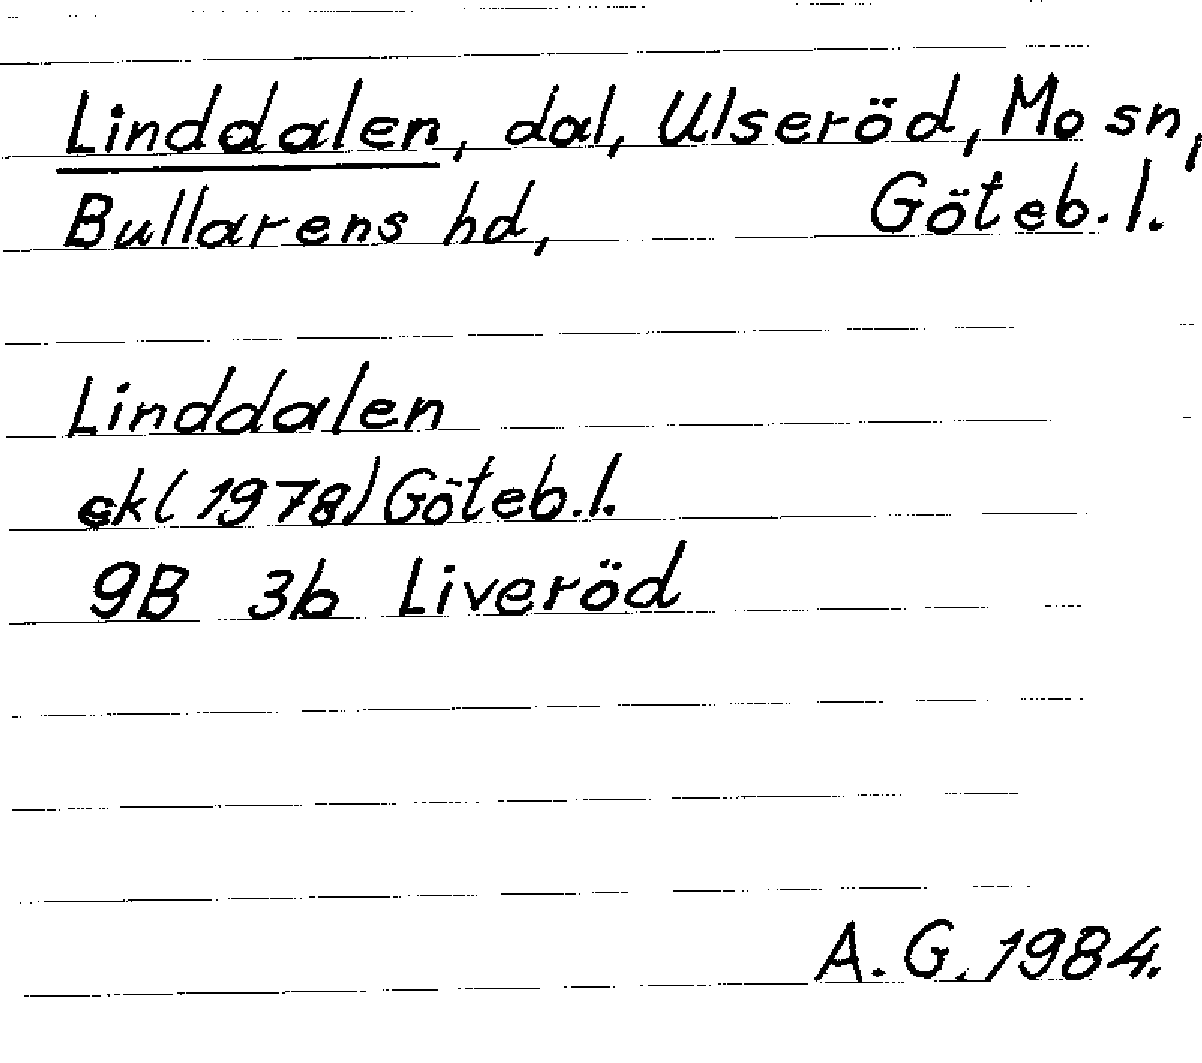 Linddalen, dal, Ulseröd, Mo sn,
Bullarens hd, Göteb. l.
Linddalen
ek (1978) Göteb. l.
9B 3b Liveröd
A. G. 1984.